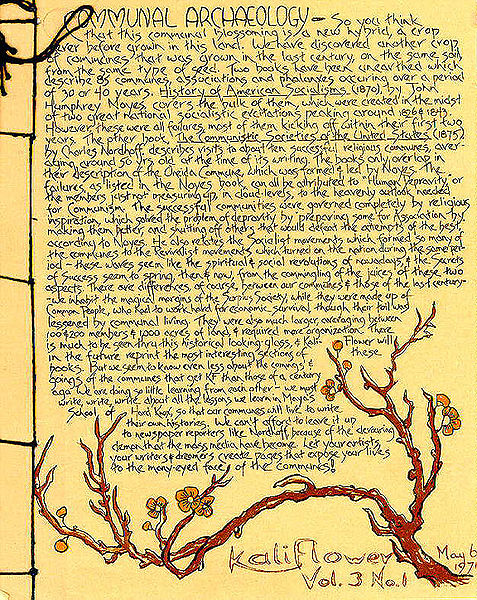 COMMUNAL ARCHAEOLOGY – So you think
that this communal blossoming is a new hybrid, a crop
never before grown in this land. We have discovered another crop
of communes that was grown in the last century on the same soil,
from the same type of seed. Two books have been unearthed which
describe 85 communes, associations and phalanxes occuring over a period
of 30 or 40 years. History of American Socialisms (1870), by John
Humphrey Noyes, covers the bulk of them, which were created in the midst
of two great national socialistic excitations peaking around 1826 & 1843.
However these were all failures, most of them kicking off within their first two
years. The other book, The Communistic Societies of the United States (1875)
by Charles Nordhoff describes visits to about ten successful religious communes, aver-
aging around 50 yrs old at the time of its writing. The books only overlap in
their description of the Oneida Commune, which was formed & led by Noyes. The
failures, as listed in the Noyes book, can all be attributed to "Human Depravity," or
the members just not measuring up, in cloud levels, to the heavenly outlook needed
for Communism. The successful communities were governed completely by religious
inspiration, which solved the problem of depravity by preparing some for Association by
making them better, and shutting off others that would defeat the attempts of the best,
according to Noyes. He also relates the Socialist movements which formed so many of
the communes to the Revivalist movements which turned on the nation during the same per-
iod – these waves seem like the spiritual & social revolutions of nowadays, & the Secrets
of Success seem to spring, then & now, from the commingling of the juices of these two
aspects. There are differences, of course, between our communes & those of the last century–
–we inhabit the magical margins of the Surplus Society, while they were made up of
Common People, who had to work hard for economic survival though their toil was
lessened by communal living. They were also much larger, averaging between
100 & 200 members & 1,000 acres of land, & required more organization. There
is much to be seen thru this historical looking-glass, & Kali-Flower will
in the future reprint the most interesting sections of these
books. But we seem to know even less about the comings &
goings of the communes that get KF than those of a century
ago. We are doing so little learning from each other – we must
write, write, write about all the lessons we learn in Maya's
School of Hard Knox, so that our communes will live to write
their own histories. We can't afford to leave it up
to newspaper reporters like Nordhoff, because of the devouring
demon that the mass media have become. Let your artists,
your writers & dreamers create pages that expose your lives
to the many-eyed face of the communes!
kaliflower
Vol. 3 No. 1
May 6
1971